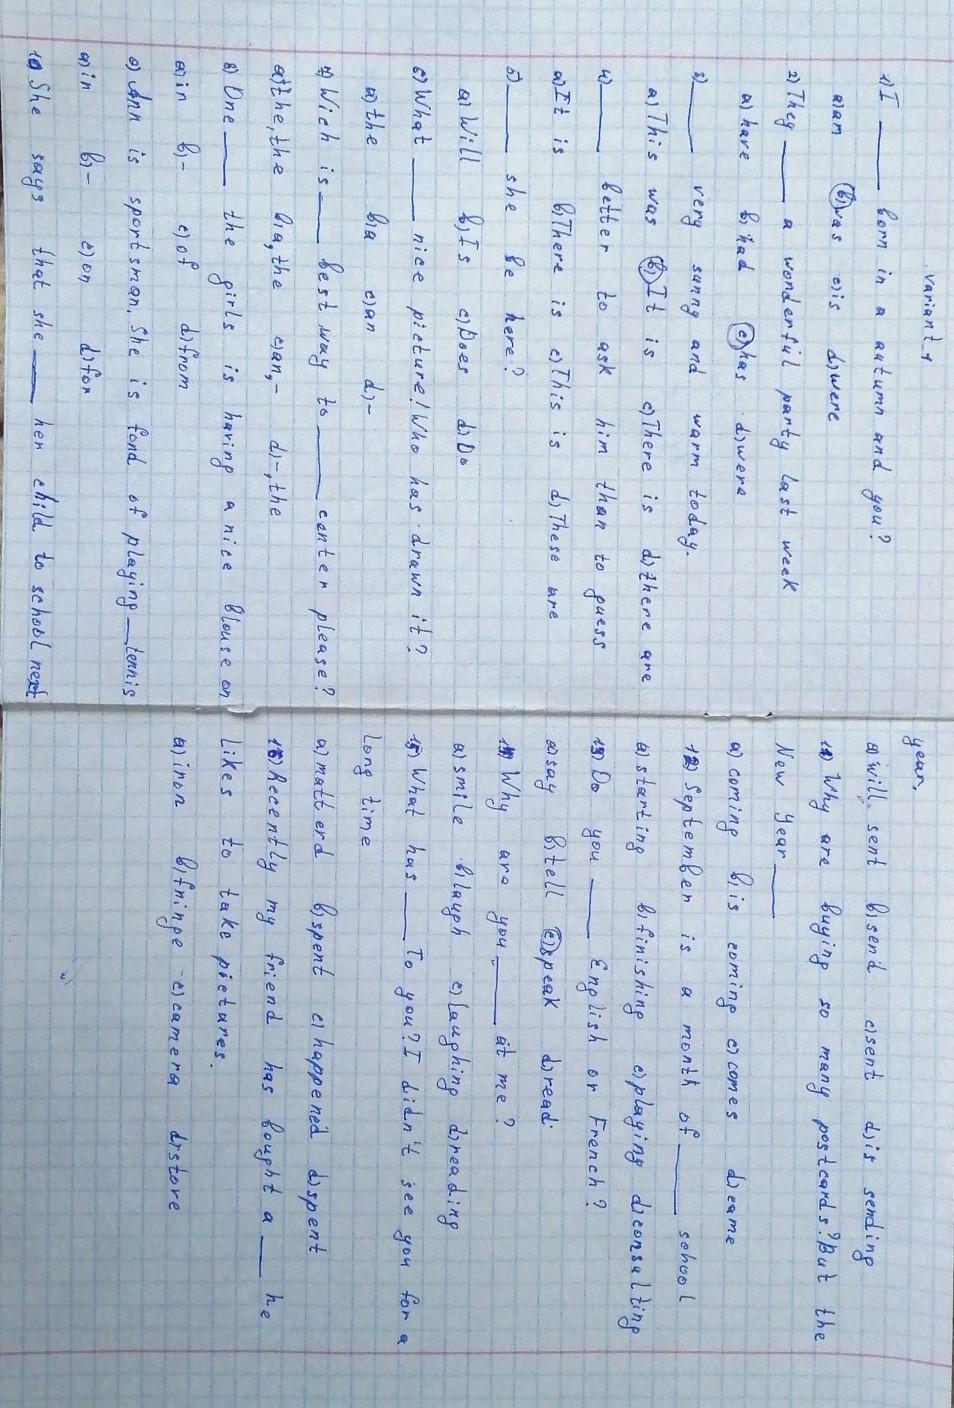 Variant 1
1) I ____ born in a autumn and you?
a) am b) was c) is d) were
2) They ____ a wonderful party last week
a) have b) had c) has d) were
3) ____ very sunny and warm today.
a) This was b) It is c) There is d) there are
4) ____ better to ask him than to guess
a) It is b) There is c) This is d) These are
5) ____ she be here?
a) Will b) Is c) Does d) Do
6) What ____ nice picture! Who has drawn it?
a) the b) a c) an d) -
7) Wich is ____ best way to ____ center please?
a) the, the b) a, the c) an, - d) -, the
8) One ____ the girls is having a nice blouse on
a) in b) - c) of d) from
9) Ann is sportsman, She is fond of playing ____ tennis
a) in b) - c) on d) for
10 She says that she ____ her child to school next
year.
a) will sent b) send c) sent d) is sending
11) Why are buying so many postcards? But the
New year ____
a) coming b) is coming c) comes d) came
12) September is a month of ____ school
a) starting b) finishing c) playing d) consulting
13) Do you ____ English or French?
a) say b) tell c) speak d) read
14) Why are you ____ at me?
a) smile b) laugh c) laughing d) reading
15) What has ____ To you? I didn't see you for a
long time
a) matterd b) spent c) happened d) spent
16) Recently my friend has bought a ____ he
likes to take pictures.
a) iron b) fringe c) camera d) store